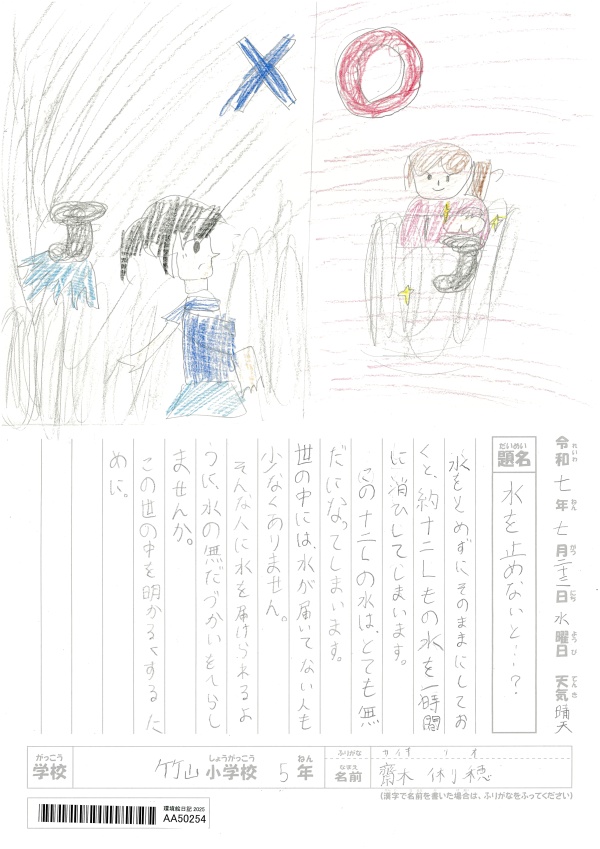 令和七年七月二十三日水曜日 天気 晴天
れいわ ねん がつ にち ようび てんき
だいめい
題名 水を止めないと…?
水をとめずにそのままにしてお
くと、約十二Lもの水を一時間
に消ひしてしまいます。
この十二Lの水は、とても無
だになってしまいます。
世の中には、水が届いてない人も
少なくありません。
そんな人に水を届けられるよ
うに、水の無だづかいをへらし
ませんか。
この世の中を明かるくするた
めに。
がっこう
学校 竹山小学校 5年
しょうがっこう ねん
ふりがな
なまえ
名前 齋木 穂
(漢字で名前を書いた場合は、ふりがなをふってください)
環境絵日記 2025
AA50254